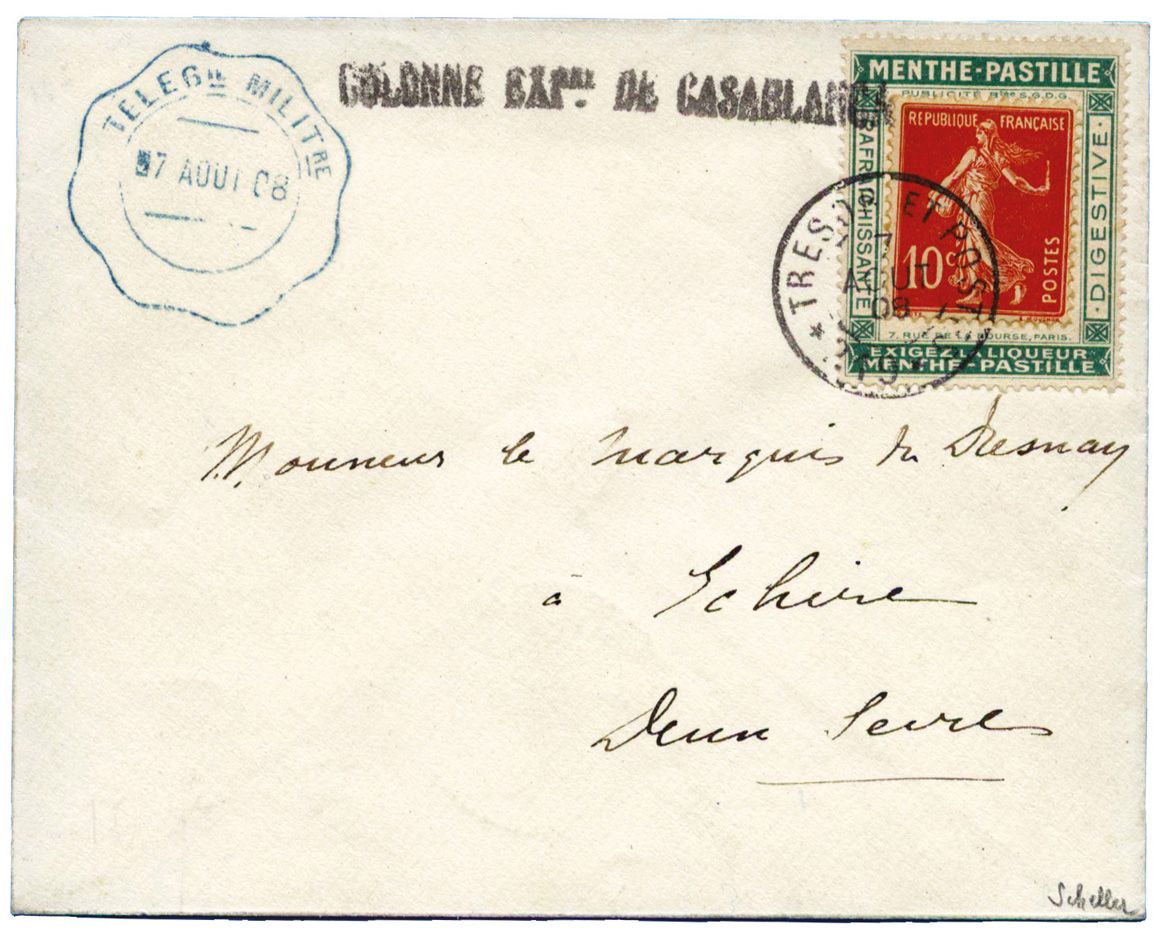 TELEG.ie MILITRE
7 AOUT 08
COLONNE EXP.re DE CASABLANCA
MENTHE-PASTILLE
PUBLICITÉ Btée S.G.D.G
RAFRAICHISSANTE
REPUBLIQUE FRANÇAISE
10 c
POSTES
DIGESTIVE
7, RUE DE LA BOURSE, PARIS.
EXIGEZ LA LIQUEUR
MENTHE-PASTILLE
* TRESOR ET POSTES *
7
AOUT
08
219
Monsieur le Marquis du Dresnay
à Echiré
Deux Sevres
Scheller